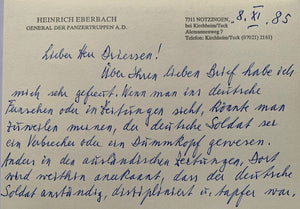 HEINRICH EBERBACH
GENERAL DER PANZERTRUPPEN A.D.
7311 NOTZINGEN,
bei Kirchheim/Teck
Alemannenweg 7
Telefon: Kirchheim/Teck (07021) 2161
8. XI. 85
Lieber Herr Driessen!
Über Ihren lieben Brief habe ich
mich sehr gefreut. Wenn man ins deutsche
Fernsehen oder in Zeitungen sieht, könnte man
zuweilen meinen, der deutsche Soldat sei
ein Verbrecher oder ein Dummkopf gewesen.
Anders in den ausländischen Zeitungen. Dort
wird weithin anerkannt, dass der deutsche
Soldat anständig, diszipliniert u. tapfer war.